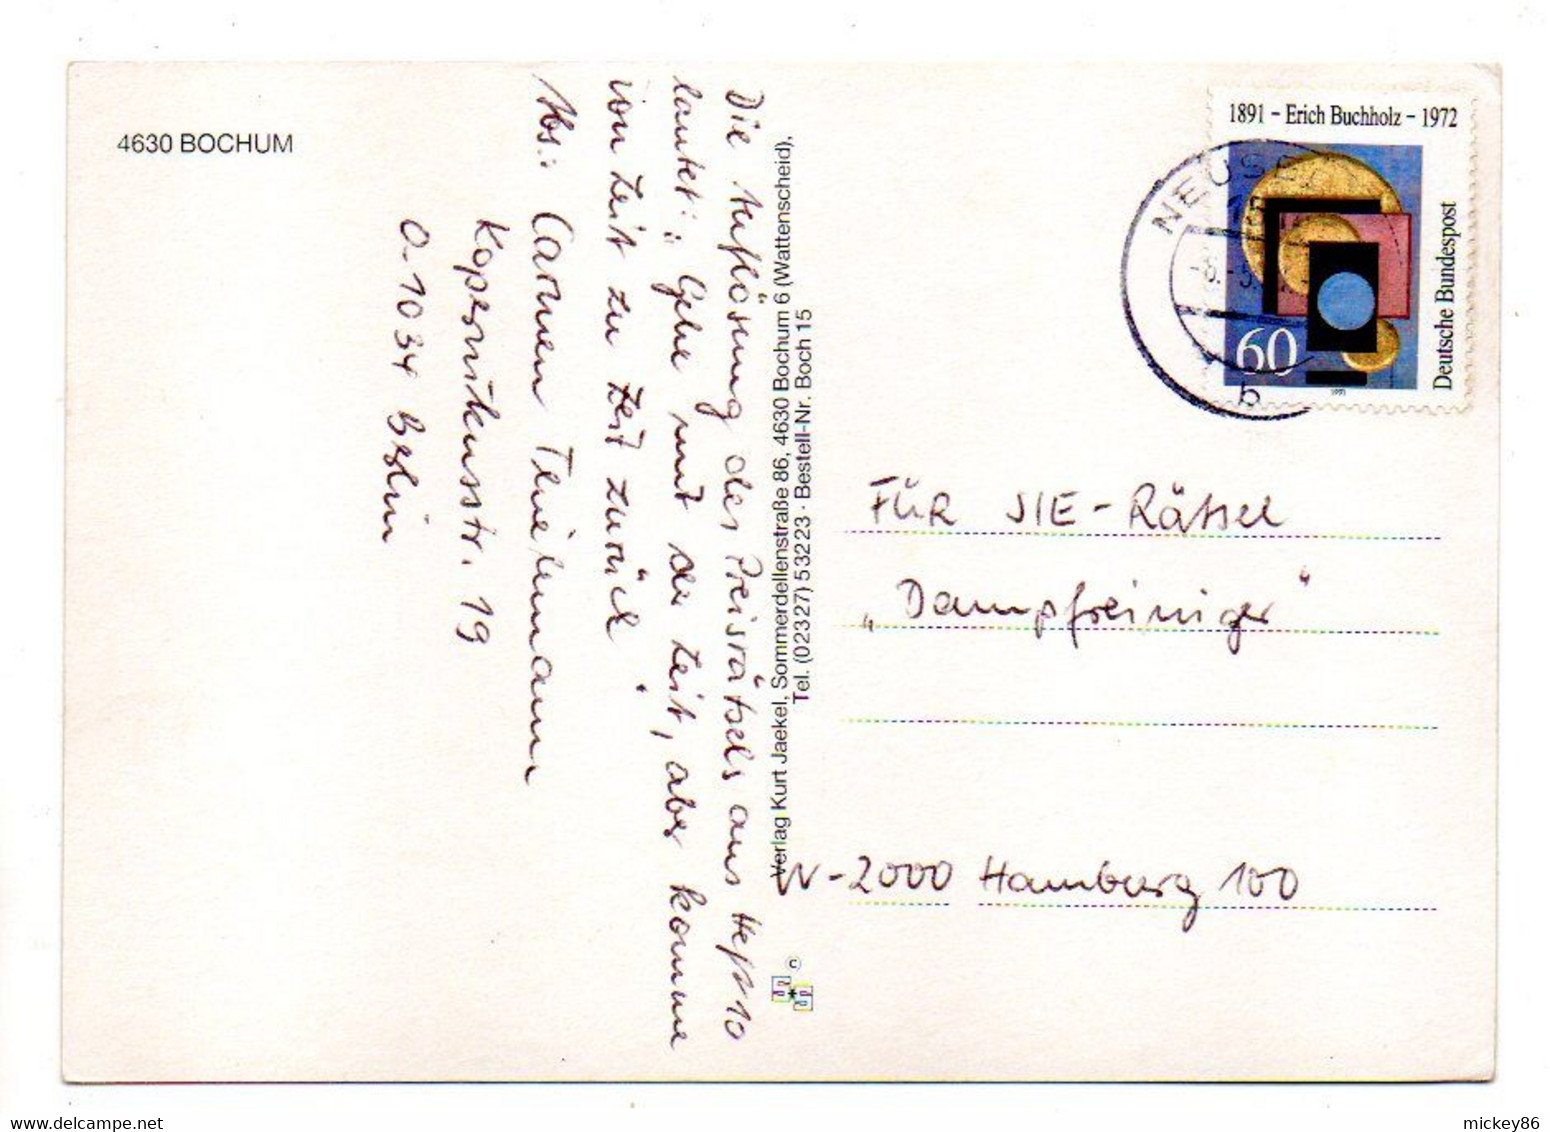 4630 BOCHUM
Die Auflösung des Preisrätsels aus Heft 10
lautet: „Gehe mit der Zeit, aber komme
von Zeit zu Zeit zurück“
Abs.: Carmen
Kopernikusstr. 19
O-1034 Berlin
Verlag Kurt Jaekel, Sommerdellenstraße 86, 4630 Bochum 6 (Wattenscheid),
Tel. (02327) 53223 · Bestell-Nr. Boch 15
©
1891 – Erich Buchholz – 1972
Deutsche Bundespost
60
1991
b
FÜR SIE-Rätsel
„Dampfreiniger“
W-2000 Hamburg 100
mickey86